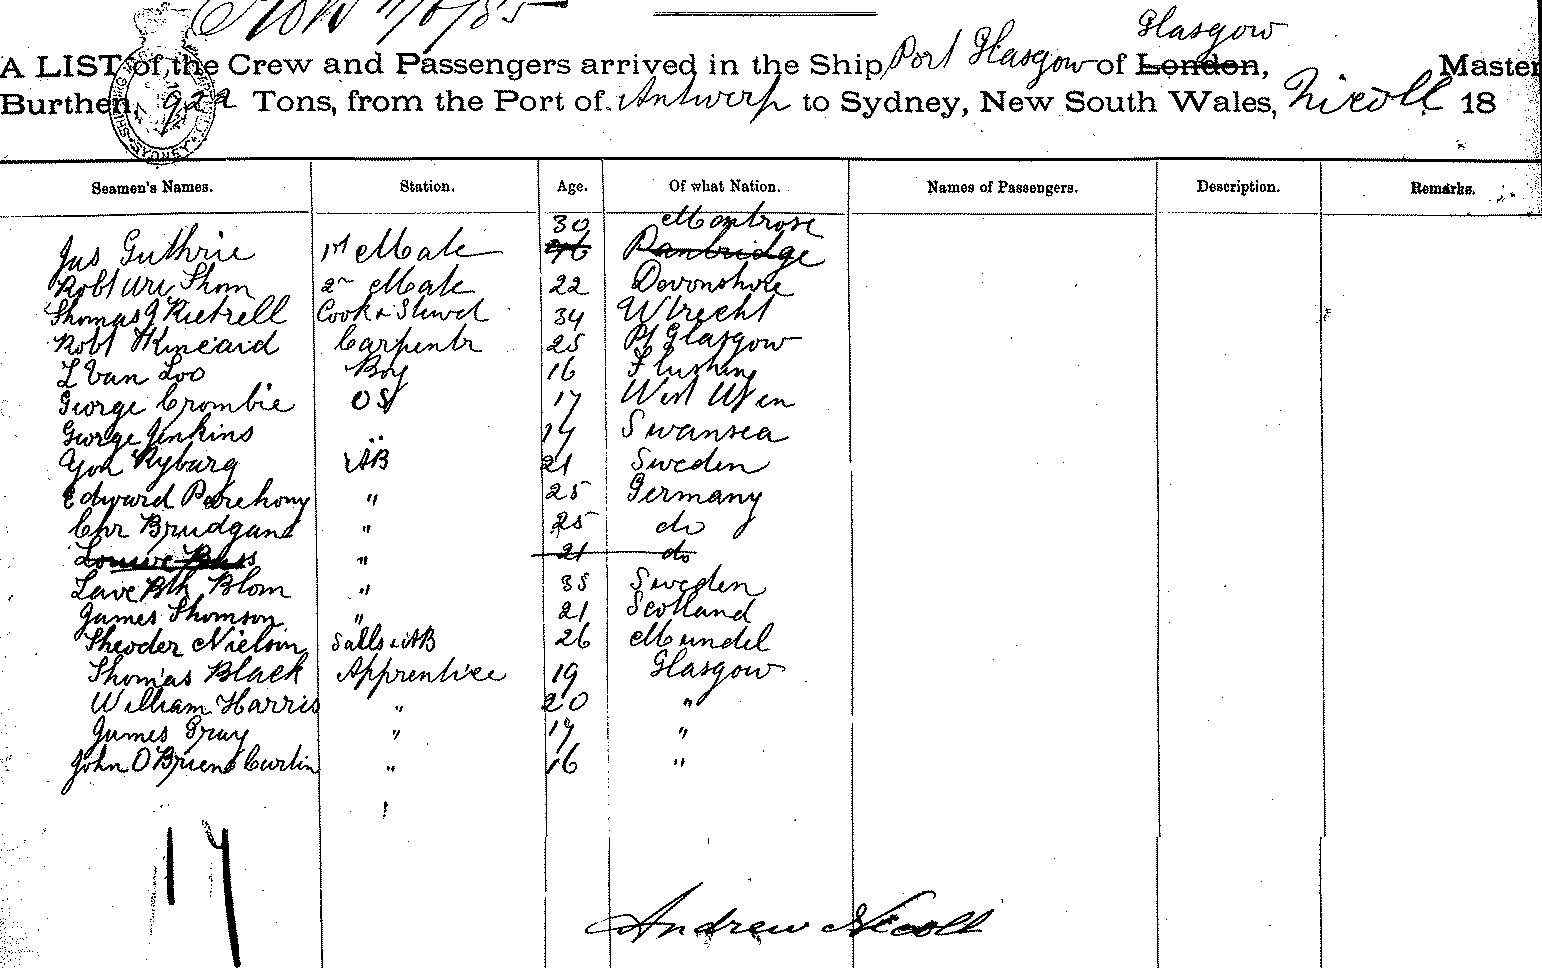 7/8/85
Glasgow
A LIST of the Crew and Passengers arrived in the Ship Port Glasgow of London, Master
Burthen 922 Tons, from the Port of Antwerp to Sydney, New South Wales, Nicoll 18
Seamen's Names. Station. Age. Of what Nation. Names of Passengers. Description. Remarks.
30 Montrose
Jas Guthrie 1st Mate Panbridge
Robt Thom 2n Mate 22 Devonshire
Thomas J Kietrell Cook & Stewd 34 Utrecht
Robt Kincaid Carpentr 25 Pt Glasgow
L Van Loo Boy 16 Flushing
George Crombie OS 17 West
George Jenkins " 17 Swansea
Ryburg AB 21 Sweden
Edward " 25 Germany
Chr Brudgand " 25 do
" 21 do
Blom " 35 Sweden
James Thomson " 21 Scotland
Theoder Nielson Sails & AB 26
Thomas Black Apprentice 19 Glasgow
William Harris " 20 "
James Gray " 17 "
John O'Briens Curtin " 16 "
17
Andrew Nicoll